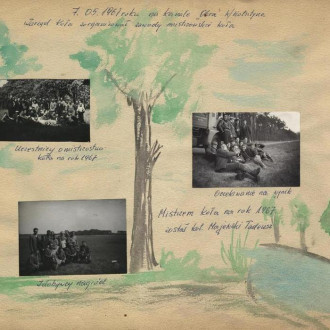 7.05.1967 roku na kanale Obra
Zarząd Koła zorganizował zawody mistrzowskie koła
Uczestnicy o mistrzostwo
koła na rok 1967
Oczekiwanie na wynik
Mistrzem koła na rok 1967
został kol. Majewski Tadeusz
Zdobywcy nagród